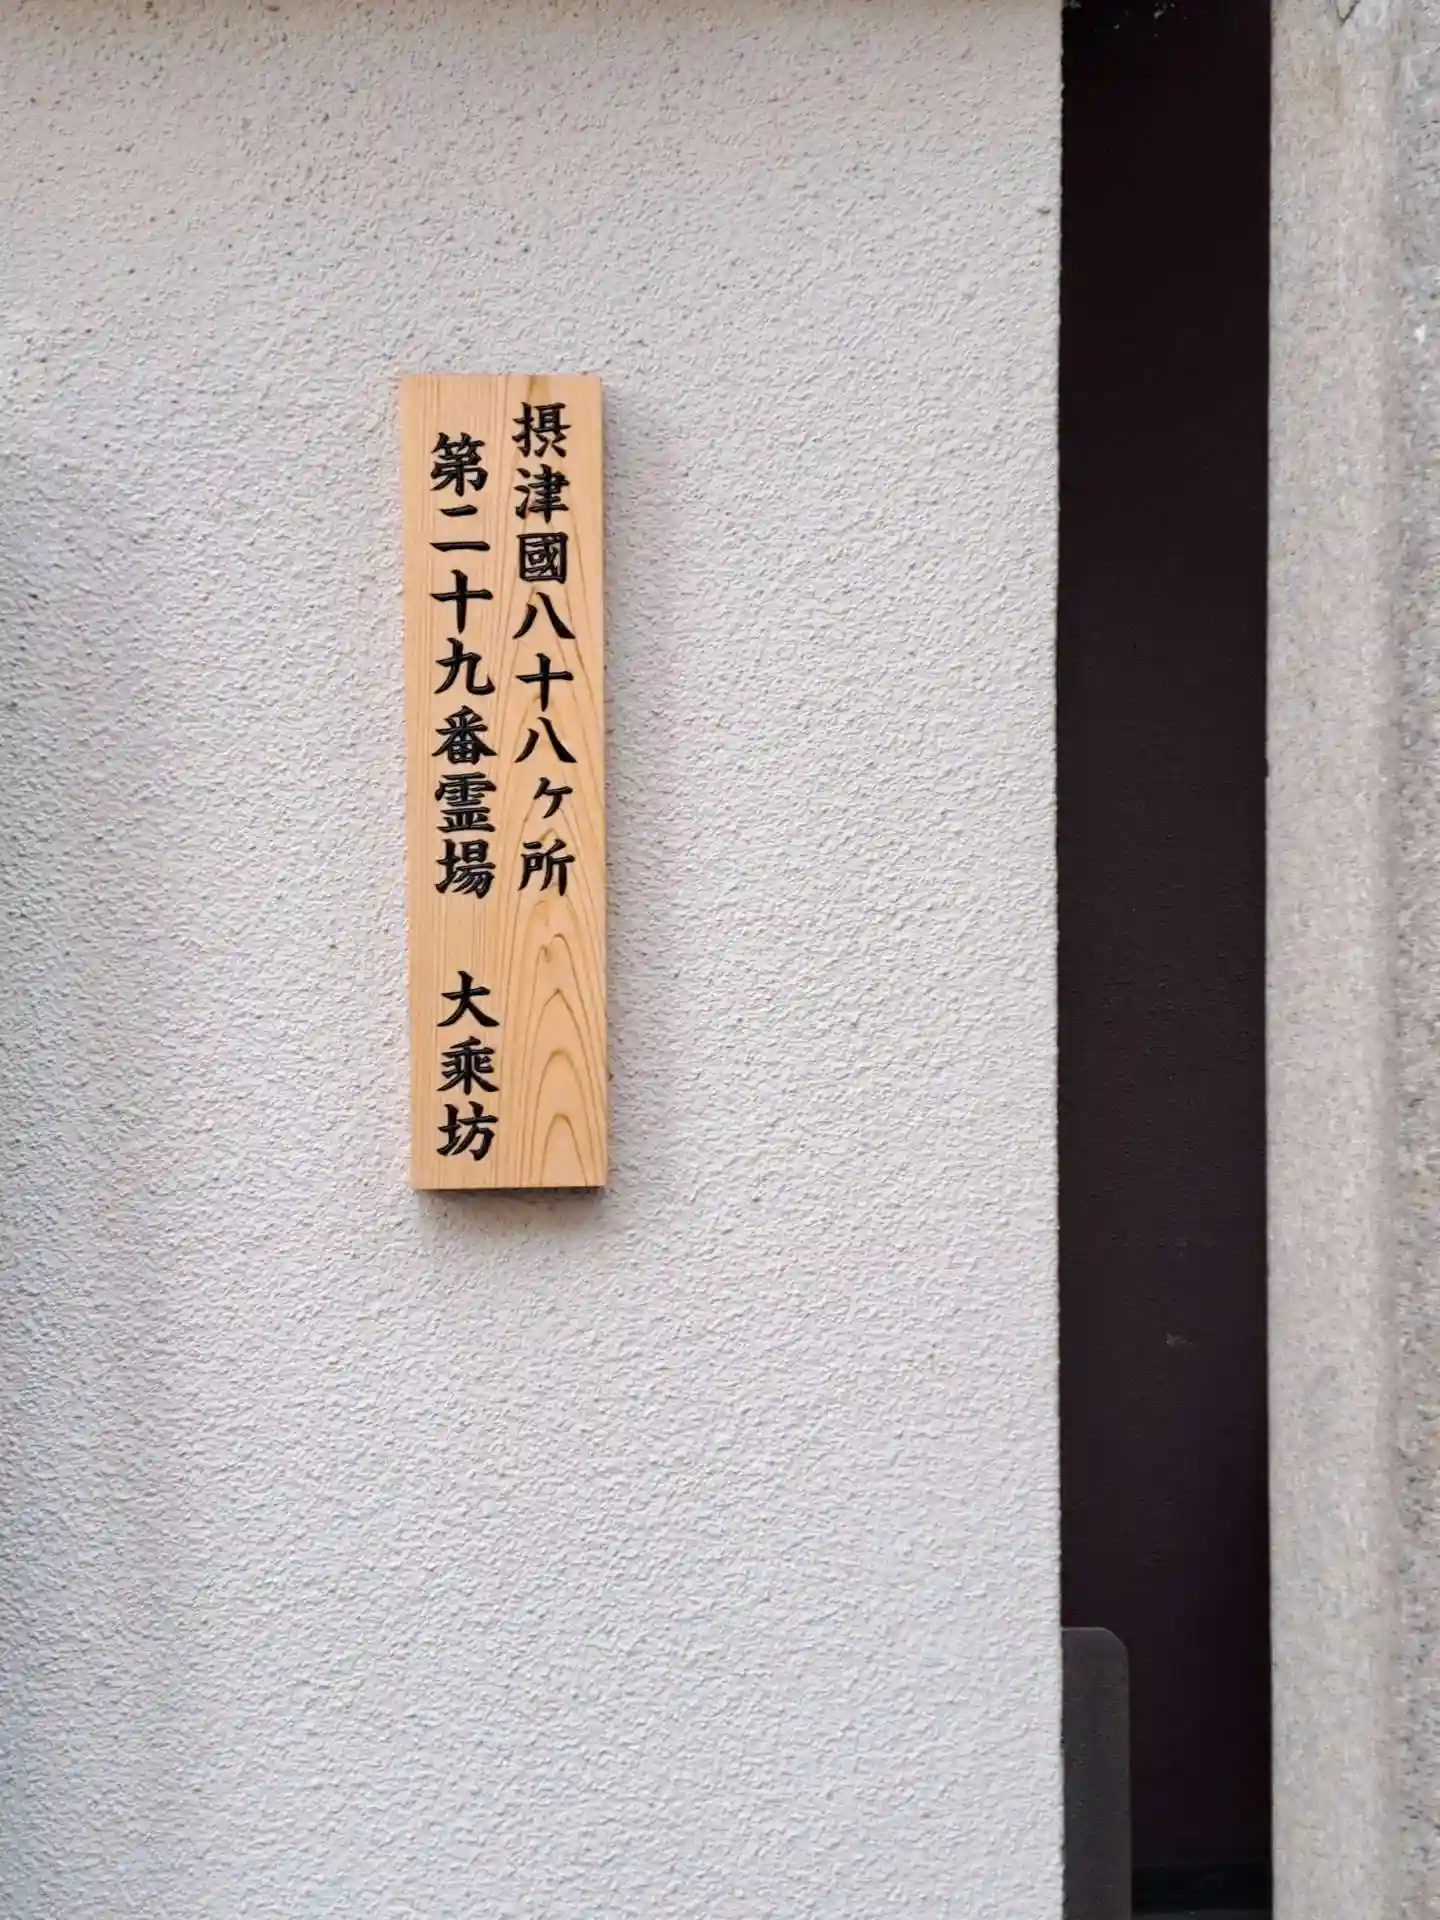 摂津國八十八ヶ所
第二十九番霊場　大乘坊